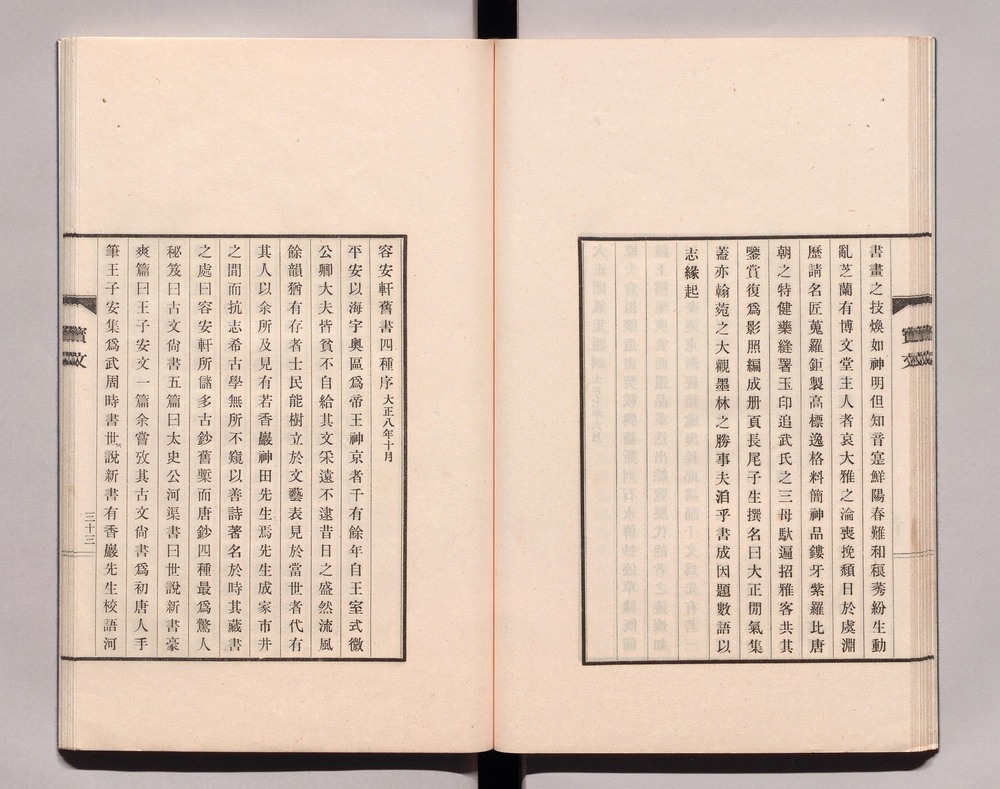 書畫之技煥如神明但知音寔鮮陽春難和稂莠紛生動
亂芝蘭有博文堂主人者哀大雅之淪喪挽頹日於虞淵
歷請名匠蒐羅鉅製高標逸格料簡神品鏤牙紫羅比唐
朝之特健藥縫署玉印追武氏之三母馱遍招雅客共其
鑒賞復爲影照編成册頁長尾子生撰名曰大正閒氣集
蓋亦翰苑之大觀墨林之勝事夫洎乎書成因題數語以
志緣起
容安軒舊書四種序 大正八年十月
平安以海宇奧區爲帝王神京者千有餘年自王室式微
公卿大夫皆貧不自給其文采遠不逮昔日之盛然流風
餘韻猶有存者士民能樹立於文藝表見於當世者代有
其人以余所及見有若香巖神田先生焉先生成家市井
之間而抗志希古學無所不窺以善詩著名於時其藏書
之處曰容安軒所儲多古鈔舊槧而唐鈔四種最爲驚人
秘笈曰古文尙書五篇曰太史公河渠書曰世說新書豪
爽篇曰王子安文一篇余嘗攷其古文尙書爲初唐人手
筆王子安集爲武周時書世說新書有香巖先生校語河
三十三